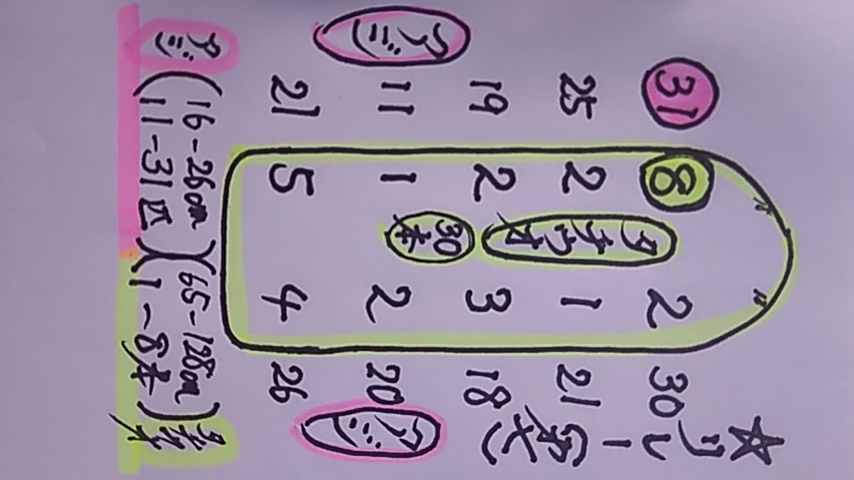 ☆リレー
31 8 2 30
25 2 1 21
19 2 3 18
11 1 2 20
21 5 4 26
タチウオ
30本
アジ
アジ
アジ(16-26cm)(65-128cm)タチウオ
11-31匹 1-8本